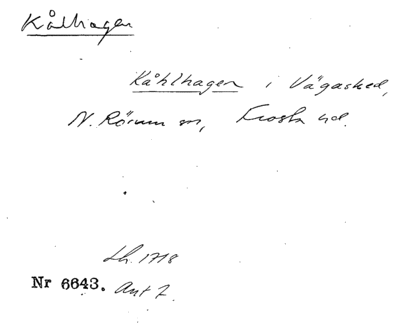 Kålhagen
Kåhlhagen i Vägasked,
N. Rörum sn, Frosta hd.
Lh. 1718
Nr 6643. Ant 7.